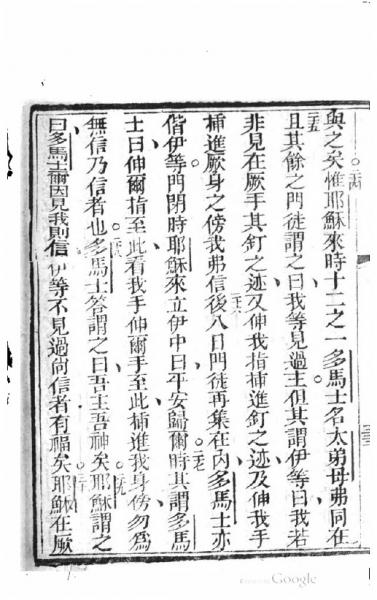 與之矣惟耶穌來時十二之一多馬士名太弟母弗同在
二五
且其餘之門徒謂之曰我等見過主但其謂伊等曰我若
非見在厥手其釘之迹及伸我指插進釘之迹及伸我手
插進厥身之傍我弗信後八日門徒再集在內多馬士亦
二六
偕伊等門閉時耶穌來立伊中曰平安歸爾時其謂多馬
二七
士曰伸爾指至此看我手伸爾手至此插進我身傍勿為
無信乃信者也多馬士答謂之曰吾主吾神矣耶穌謂之
二八
二九
曰多馬士爾因見我則信伊等不見過尚信者有福矣耶穌在厥
三十
Google